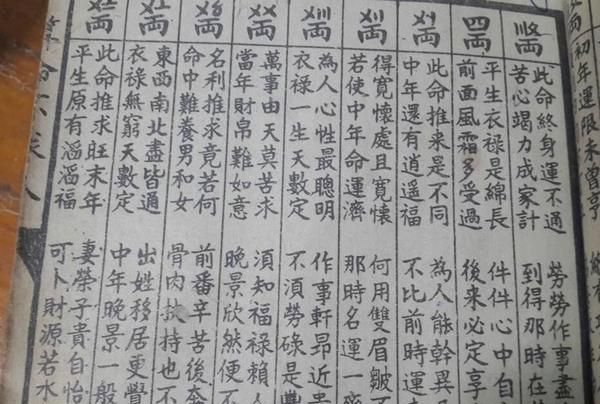 初年運限未曾亨
〣〩両
此命終身運不通 勞勞作事盡
苦心竭力成家計 到得那時在
四両
平生衣祿是綿長 件件心中自
前面風霜多受過 後来必定享
〤〡両
此命推来是不同 為人能幹異
中年還有逍遥福 不比前時運
〤〢両
得寬懷處且寬懷 何用雙眉皺
若使中年命運濟 那時名運一
〤〣両
為人心性最聰明 作事軒昂近
衣祿一生天數定 不須勞碌是
〤〤両
萬事由天莫苦求 須知福祿賴人
當年財帛難如意 晚景欣然便不
〤〥両
名利推求竟若何 前番辛苦後奔
命中難養男和女 骨肉扶持也不
〤〦両
東西南北盡皆通 出姓移居更覺
衣祿無窮天數定 中年晚景一般
〤〧両
此命推求旺末年 妻榮子貴自怡
平生原有滔滔福 可卜財源若水